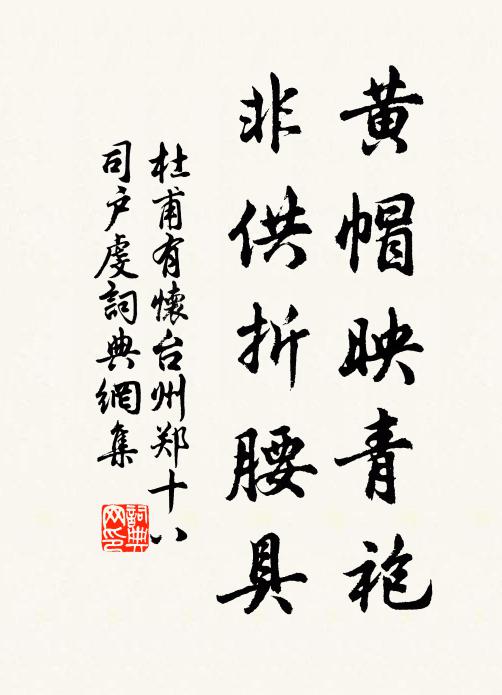 黄帽映青袍
非供折腰具
杜甫有懷台州郑十八
司户虔詞典網集
詞典
网印